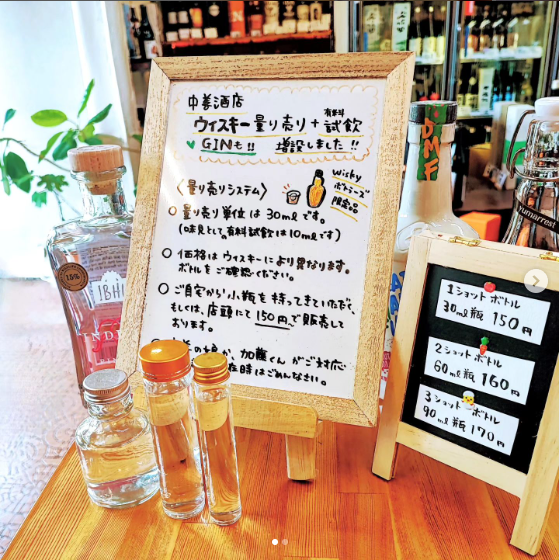 中善酒店
ウィスキー量り売り+試飲
有料
GINも!! 増設しました!!
Wisky
ボトラーズ
限定品
〈量り売りシステム〉
○ 量り売り単位は30mlです。
(味見としての有料試飲は10mlです)
○ 価格はウィスキーにより異なります。
ボトルをご確認ください。
○ ご自宅から小瓶を持ってきていただく、
もしくは、店頭にて150円〜で販売して
おります。
加藤くんがご対応
在時はごめんなさい。
1ショットボトル
30ml瓶 150円
2ショットボトル
60ml瓶 160円
3ショットボトル
90ml瓶 170円
DMF